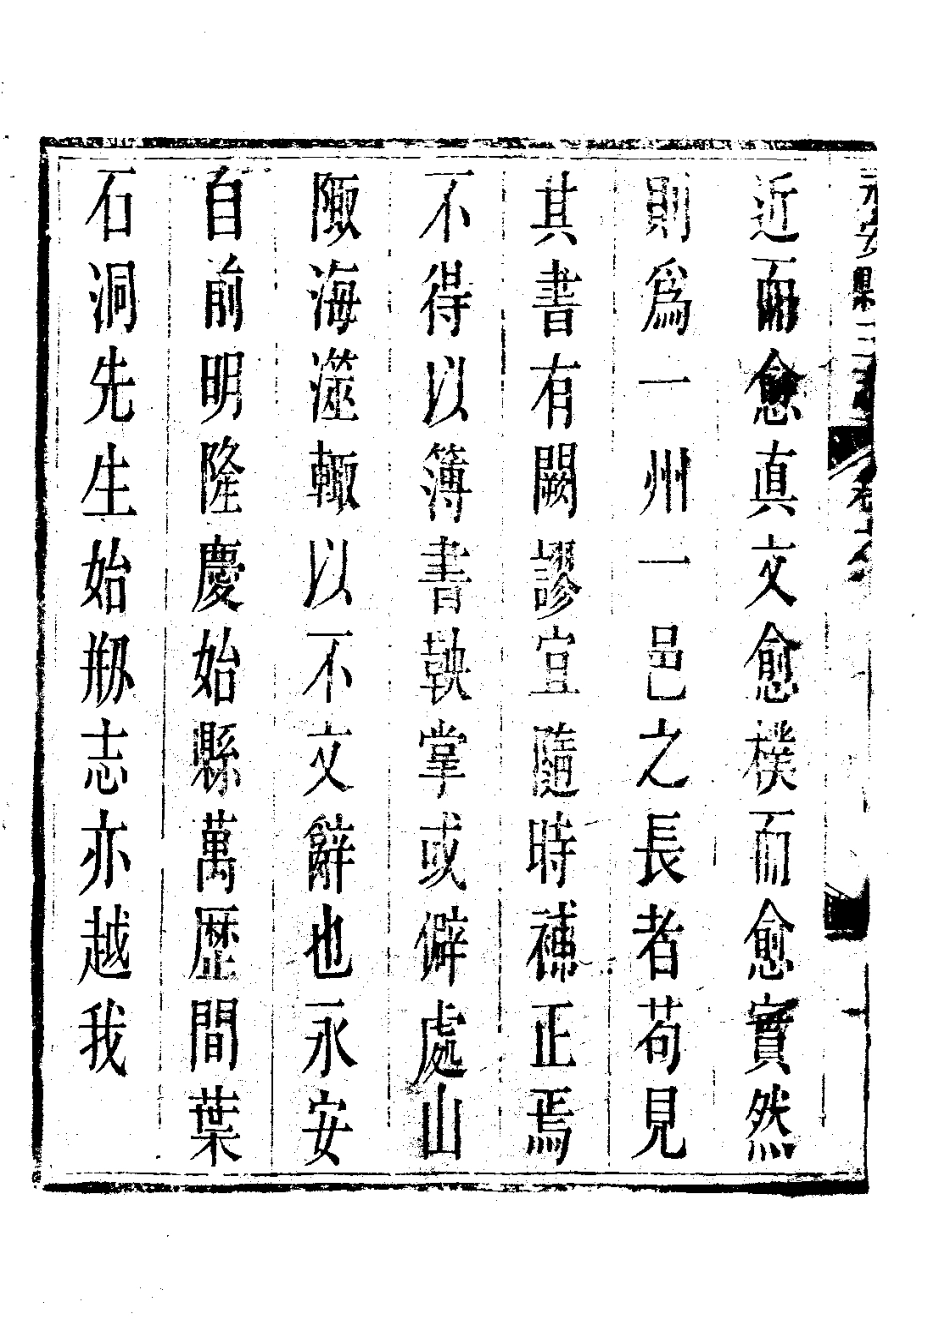 永安縣三志
近而愈真文愈樸而愈實然
則爲一州一邑之長者苟見
其書有闕謬宜隨時補正焉
不得以簿書鞅掌或僻處山
陬海澨輒以不文辭也永安
自前明隆慶始縣萬歷間葉
石洞先生始剏志亦越我